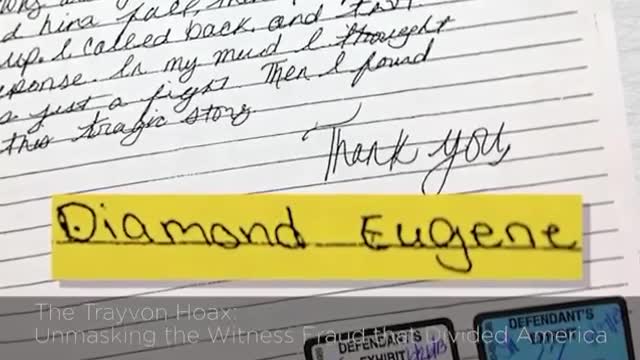 up. I called back and
response. In my mind I thought
just a fight. Then I found
this tragic story
Thank you,
Diamond Eugene
The Trayvon Hoax:
Unmasking the Witness Fraud that Divided America
DEFENDANT'S
EXHIBIT
DEFENDANT'S